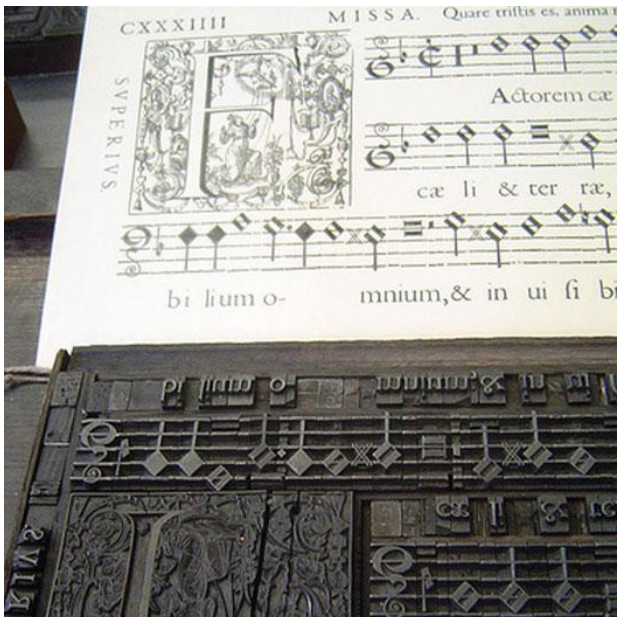 CXXXIIII MISSA. Quare triſtis es, anima
SVPERIVS.
F
Actorem cæ
cæ li & ter ræ,
bi lium o- mnium, & in ui ſi bi